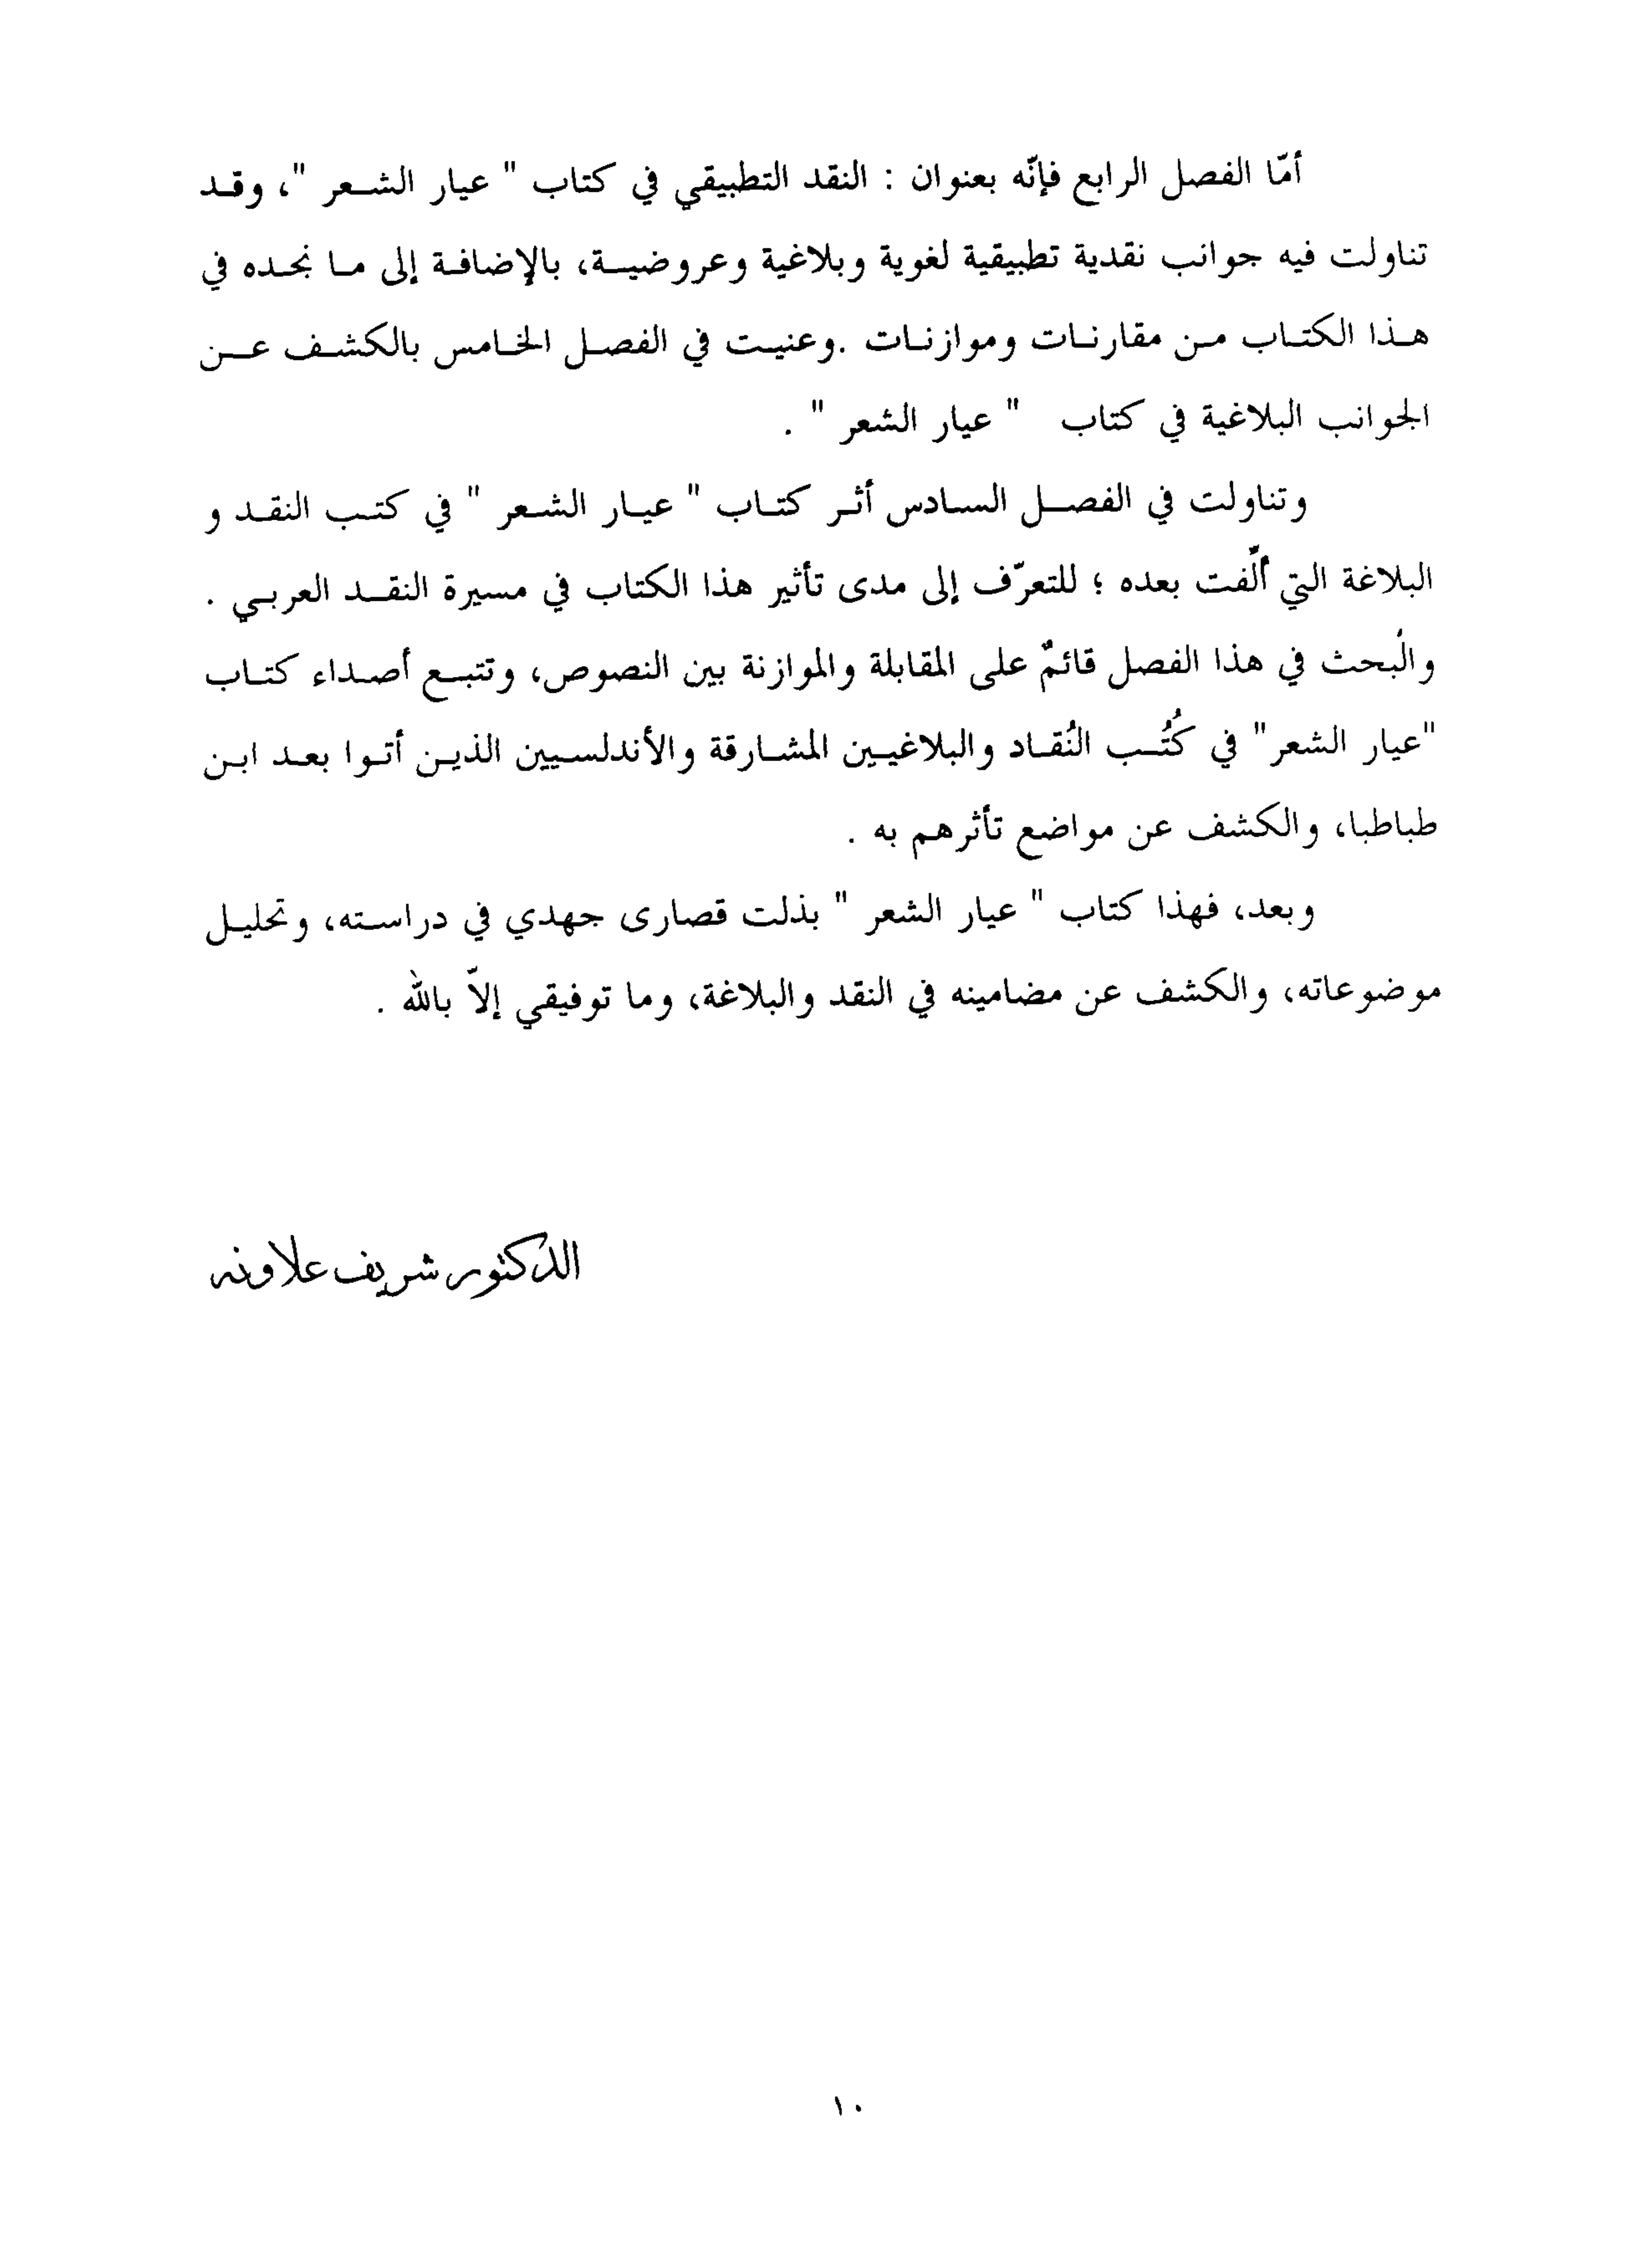 أمّا الفصل الرابع فإنّه بعنوان : النقد التطبيقي في كتاب " عيار الشعر "، وقد
تناولت فيه جوانب نقدية تطبيقية لغوية وبلاغية وعروضية، بالإضافة إلى ما نجده في
هذا الكتاب من مقارنات وموازنات .وعنيت في الفصل الخامس بالكشف عن
الجوانب البلاغية في كتاب " عيار الشعر " .
وتناولت في الفصل السادس أثر كتاب " عيار الشعر " في كتب النقد و
البلاغة التي ألّفت بعده ؛ للتعرّف إلى مدى تأثير هذا الكتاب في مسيرة النقد العربي .
والْبحث في هذا الفصل قائمٌ على المقابلة والموازنة بين النصوص، وتتبع أصداء كتاب
"عيار الشعر" في كُتُب النُقاد والبلاغيين المشارقة والأندلسيين الذين أتوا بعد ابن
طباطبا، والكشف عن مواضع تأثرهم به .
وبعد، فهذا كتاب " عيار الشعر " بذلت قصارى جهدي في دراسته، وتحليل
موضوعاته، والكشف عن مضامينه في النقد والبلاغة، وما توفيقي إلاّ بالله .
الدكتور شريف علاونه
١٠